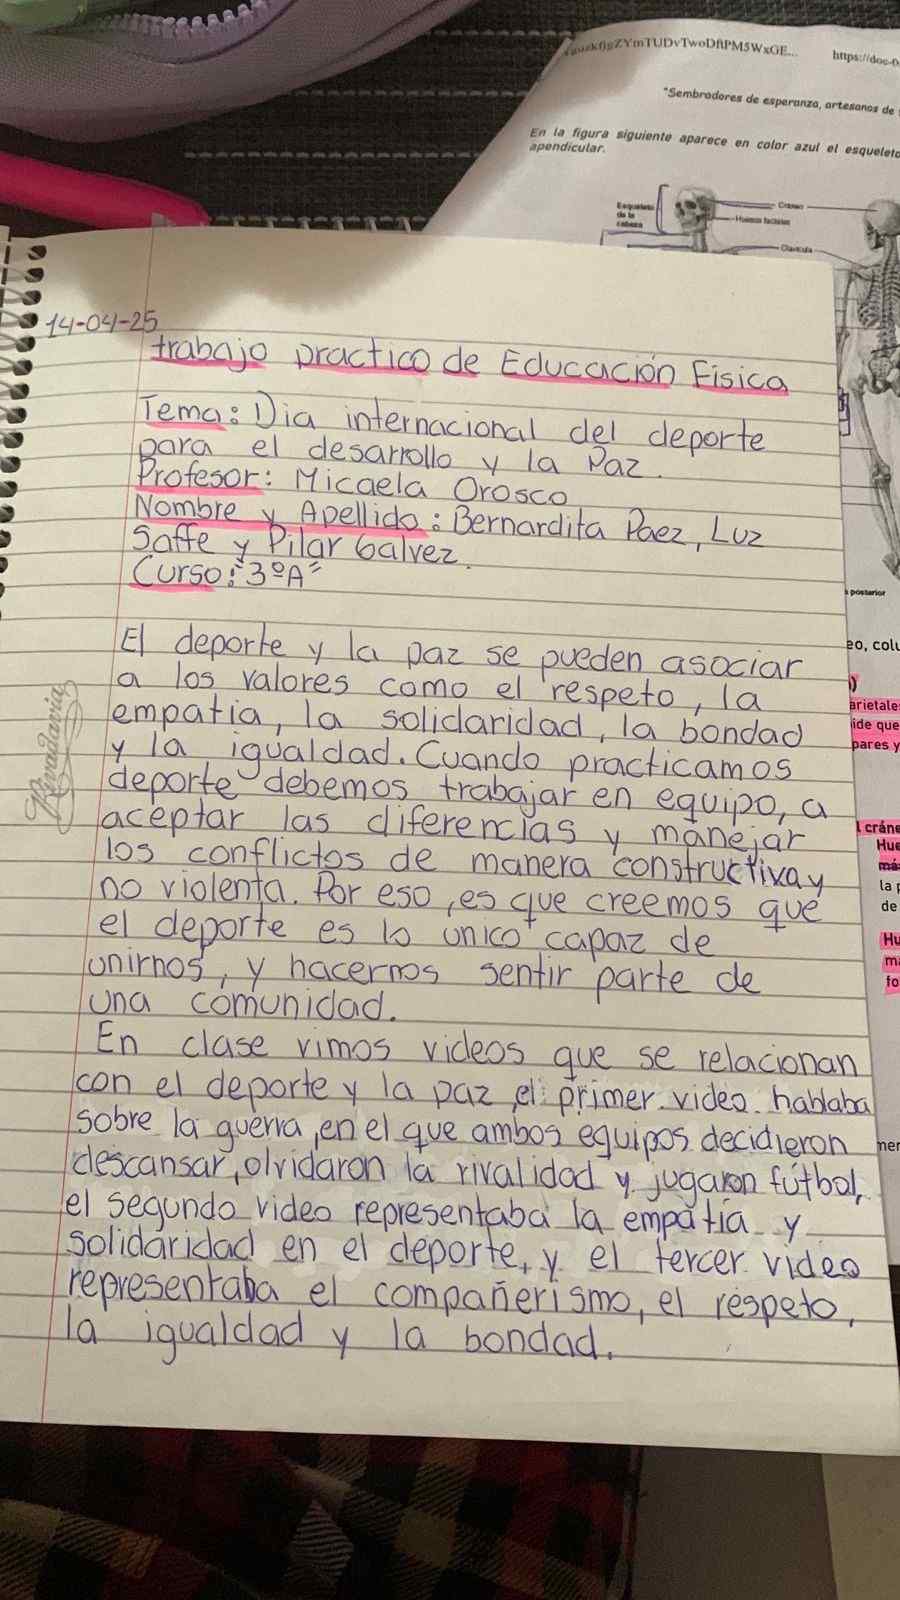 YmTUDvTwoDftPM5WxGE...
https://doc-0
"Sembradores de esperanza, artesanos de
En la figura siguiente aparece en color azul el esqueleto
apendicular.
Esqueleto
de la
cabeza
Cráneo
Huesos faciales
Clavícula
14-04-25
trabajo practico de Educación Fisica
Tema: Dia internacional del deporte
para el desarrollo y la Paz.
Profesor: Micaela Orosco
Nombre y Apellido: Bernardita Paez, Luz
Saffe y Pilar Galvez.
Curso: "3ºA"
posterior
El deporte y la paz se pueden asociar
a los valores como el respeto, la
empatia, la solidaridad, la bondad
y la igualdad. Cuando practicamos
deporte debemos trabajar en equipo, a
aceptar las diferencias y manejar
los conflictos de manera constructiva y
no violenta. Por eso, es que creemos que
el deporte es lo unico capaz de
unirnos, y hacernos sentir parte de
una comunidad.
En clase vimos videos que se relacionan
con el deporte y la paz, el primer video hablaba
sobre la guerra, en el que ambos equipos decidieron
descansar, olvidaron la rivalidad y jugaron fútbol,
el segundo video representaba la empatía y
solidaridad en el deporte, y el tercer video
representaba el compañerismo, el respeto,
la igualdad y la bondad.
Rivadavia
eo, colu
arietale
ide que
pares y
cráne
Hue
má
la p
de
Hu
ma
fo